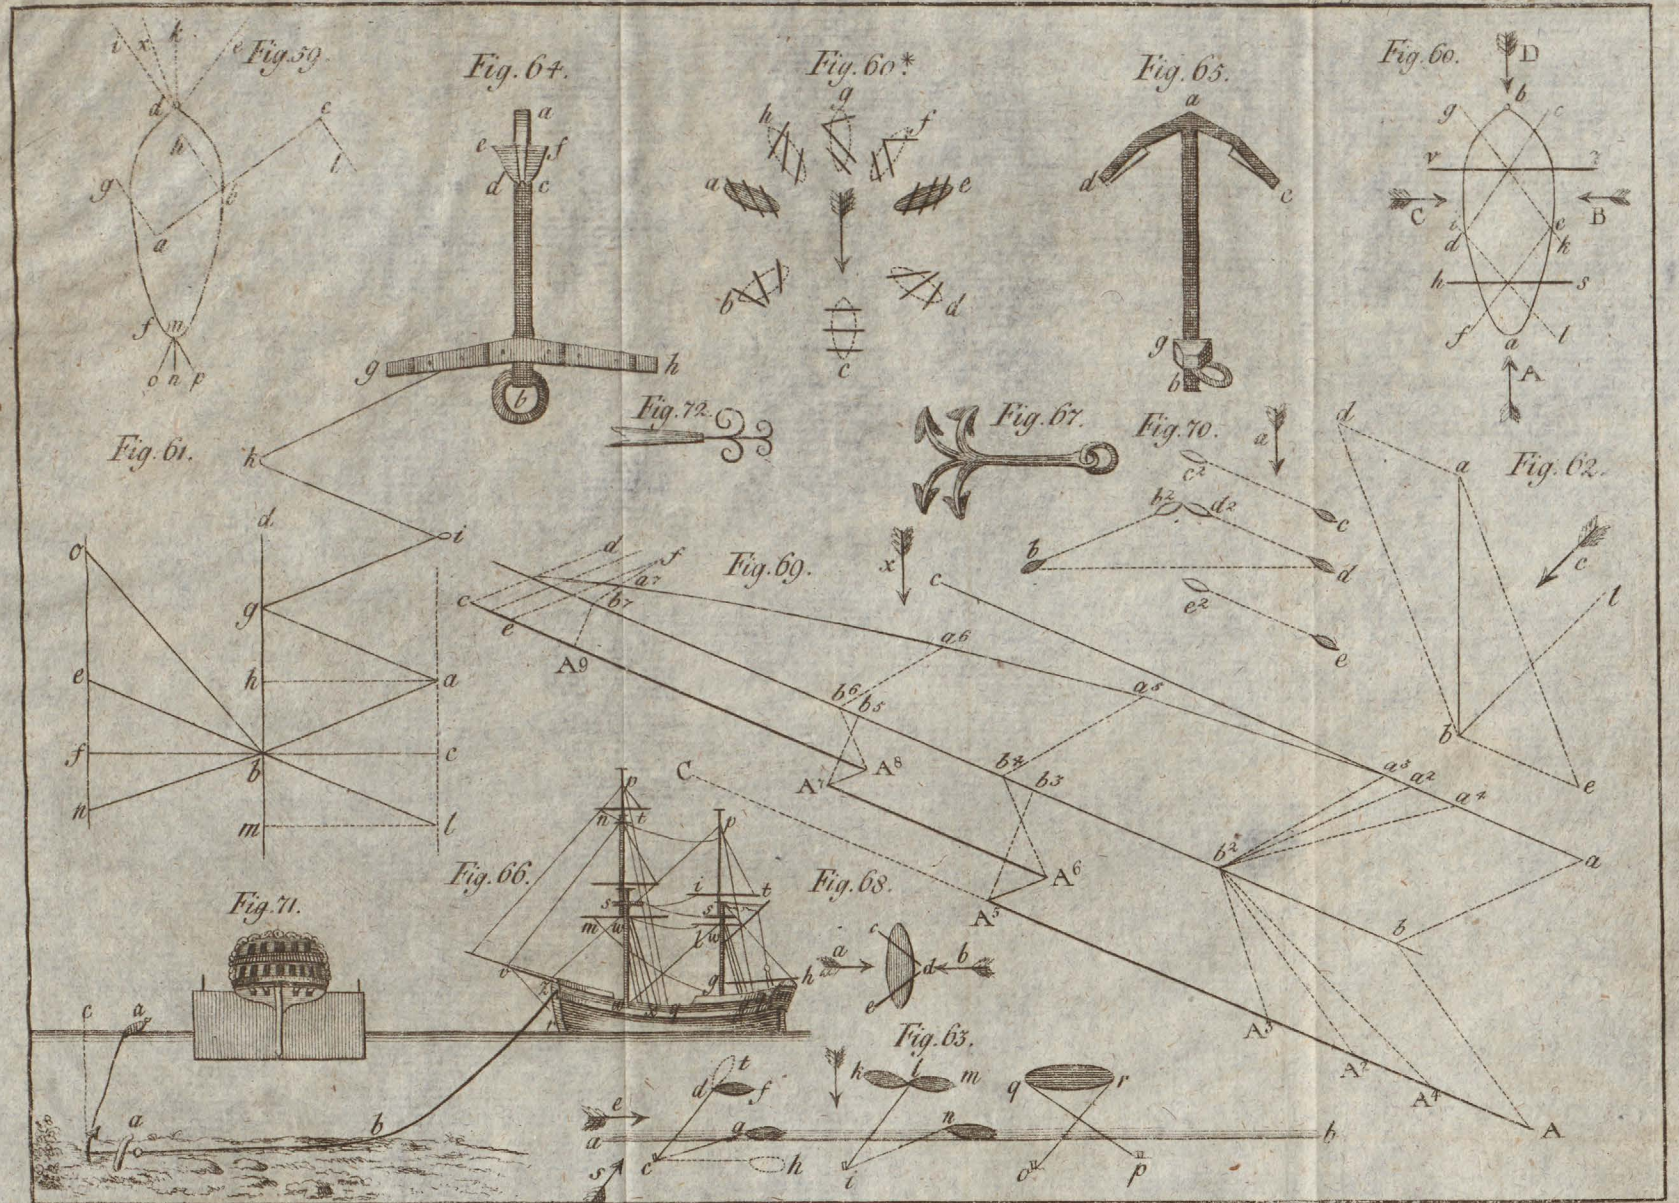 Fig. 59.
i x k e
d
h
c
l
g
b
a
f m
o n p
Fig. 64.
a
e f
d c
g h
b
Fig. 60*.
g
h f
a e
b d
c
Fig. 65.
a
d c
g
b
Fig. 60.
D
b
g c
r
C B
i e
d k
h s
f l
a
A
Fig. 61.
k
d
o i
g
e h a
f b c
n m l
Fig. 72.
Fig. 67.
Fig. 70.
a
c2
c
b2 d2
b d
e2
e
Fig. 62.
d
a
c
l
b
e
Fig. 69.
x
d f
c a7
b7
e
A9
c
a6
b6 b5
a5
A7 A8
C
b4 b3
a3 a2 a4
A5 A6
b2
a
b
A3
A2
A4
A
Fig. 66.
p
n t
p
i t
s s
m w l w
g h
o
Fig. 68.
a c b
d
e
Fig. 71.
c a
a b
Fig. 63.
t
d f
k l m
q r
e
a g n b
s c h
i o p